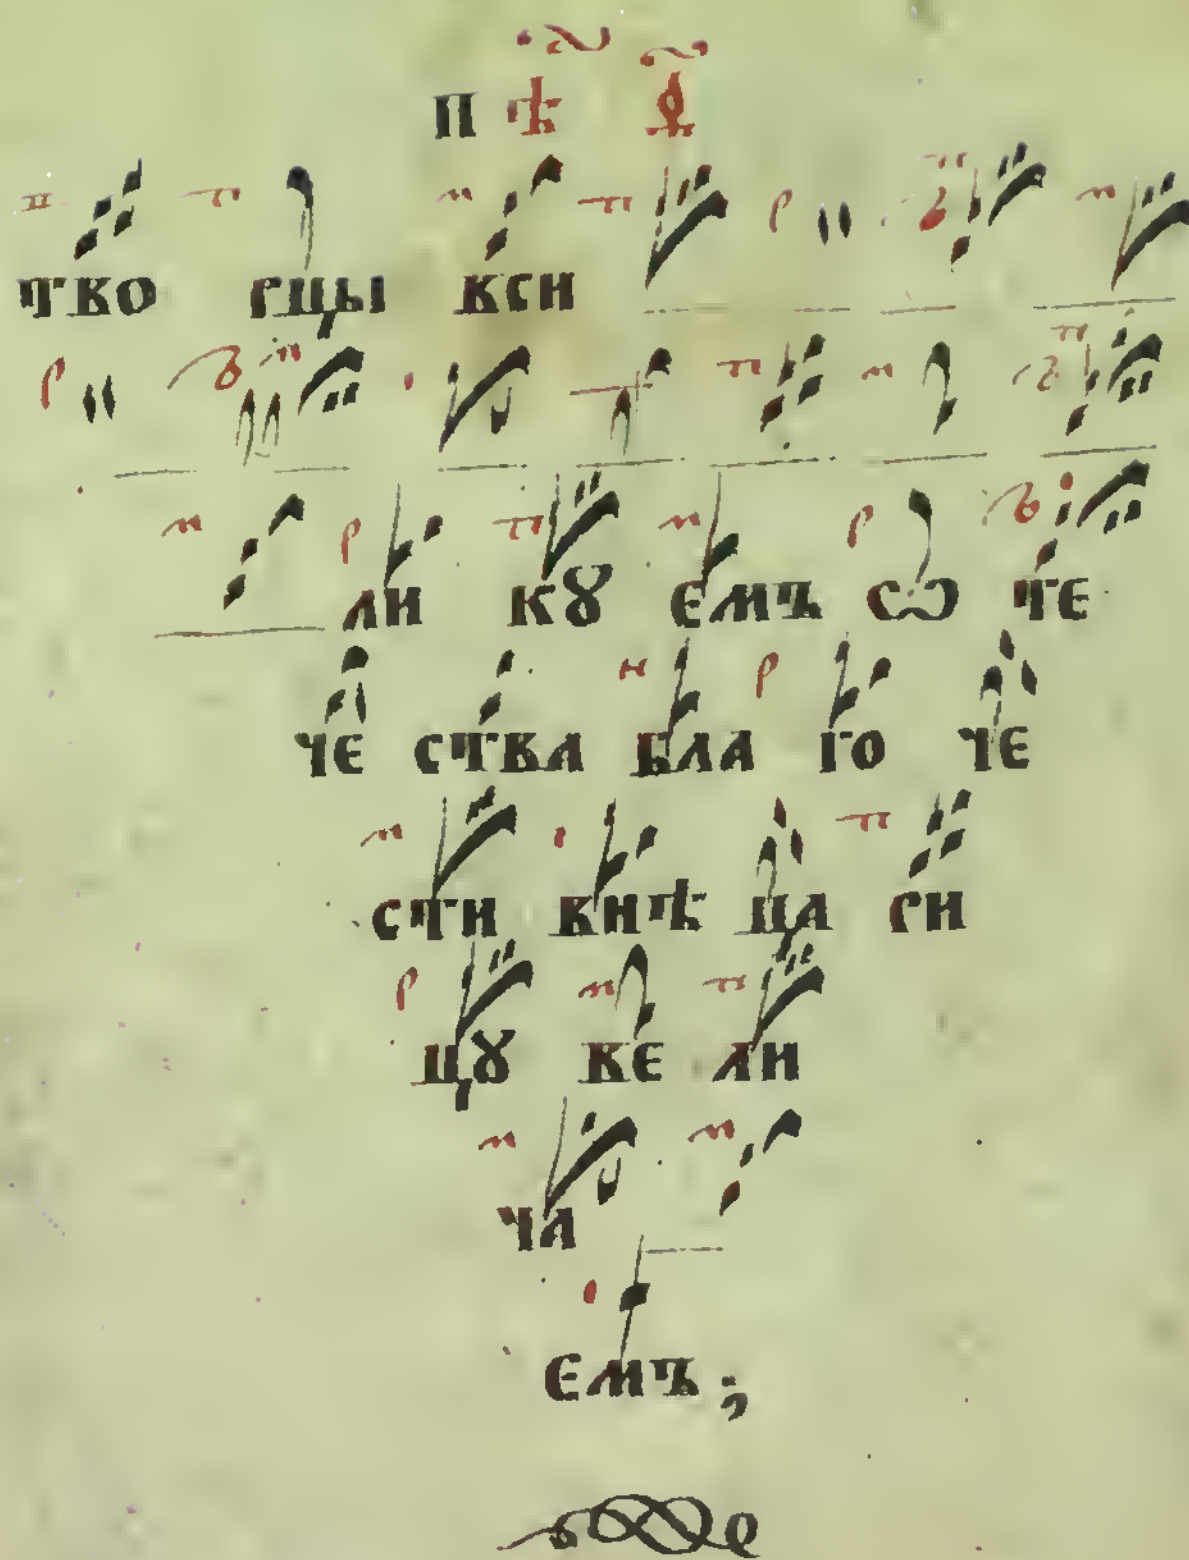 пѣ ѳ҃
тво рцы вси
ли кꙋ емъ сѡ те
че ства бла го че
сти внѣ ца ри
цꙋ ве ли
ча
емъ ;